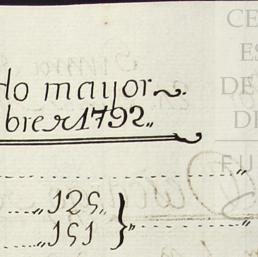 do mayor
bre 1792,,
,, 125,
,, 151
CE
ES
DE
DE
FU